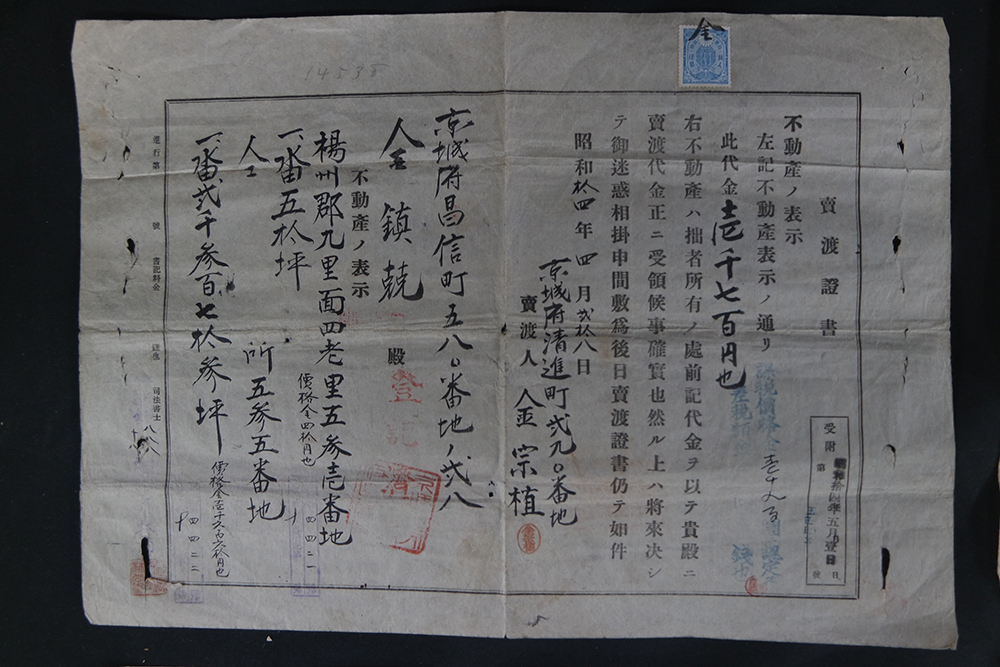 賣渡證書
不動產ノ表示
左記不動產表示ノ通リ
此代金壱千七百円也
右不動產ハ拙者所有ノ處前記代金ヲ以テ貴殿ニ
賣渡代金正ニ受領候事確實也然ル上ハ將來決シ
テ御迷惑相掛申間敷爲後日賣渡證書仍テ如件
昭和拾四年四月弐拾八日
京城府清進町弐九〇番地
賣渡人 金宗植
京城府昌信町五八〇番地ノ弐八
金鎮兢殿
不動產ノ表示
楊州郡九里面四老里五参壱番地
一、畓五拾坪
價格金四拾円也
仝 所五参五番地
一、畓弐千参百七拾参坪
受附
五月壹日
第 號
登記
濟
金
14535
書記料金
司法書士